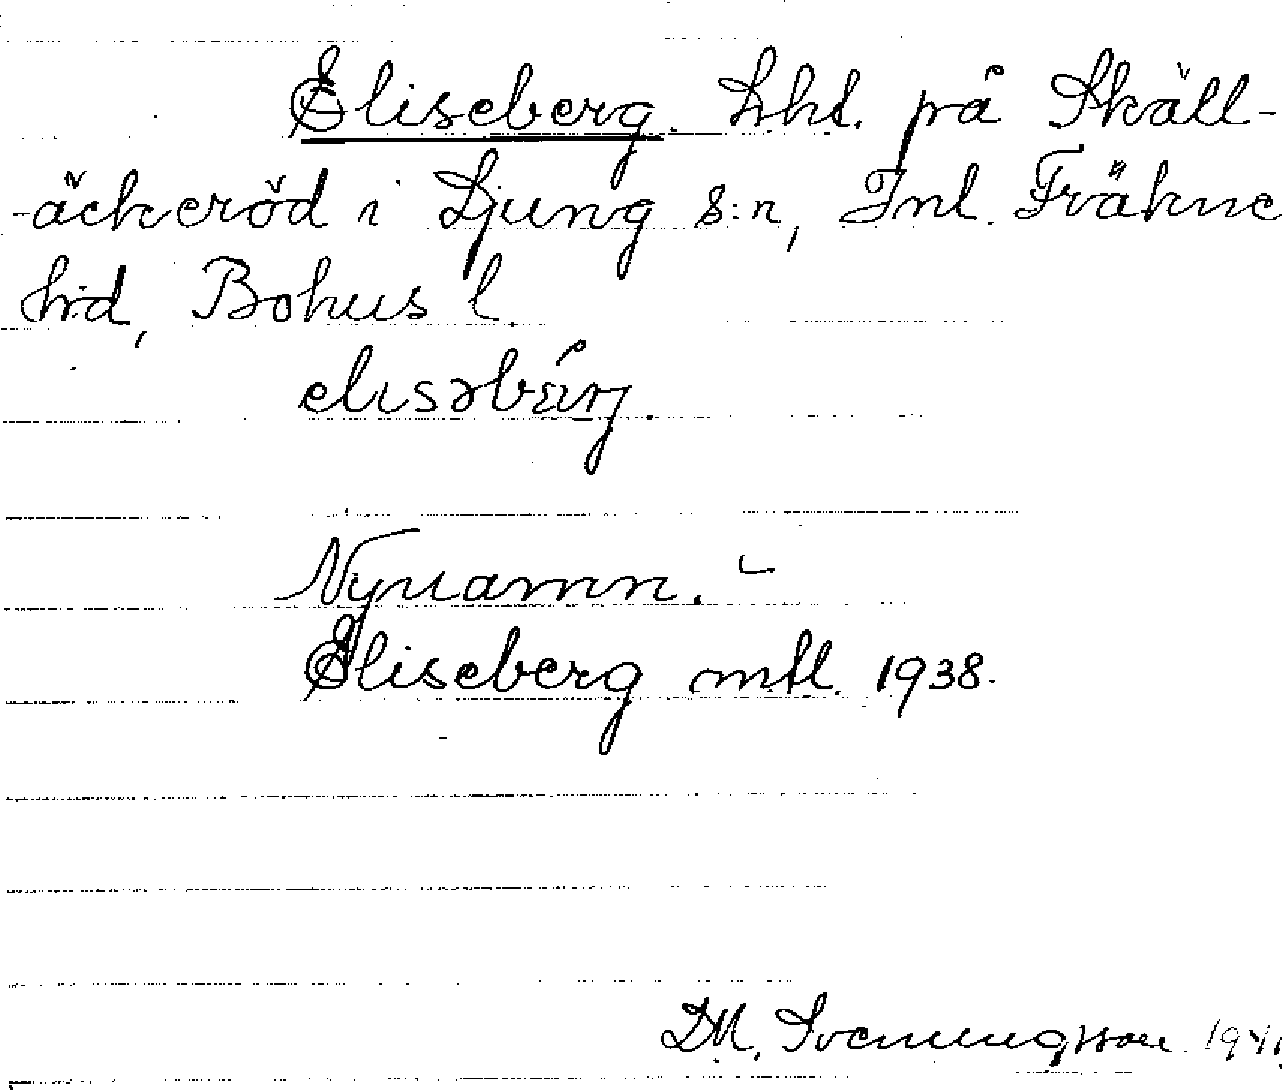 Eliseberg. Lht. på Skäll-
-äckeröd i Ljung s:n, Inl. Fräkne
hd, Bohus l.
elisəbärj.
Nynamn. -
Eliseberg mtl. 1938.
D.M. Svenningsson